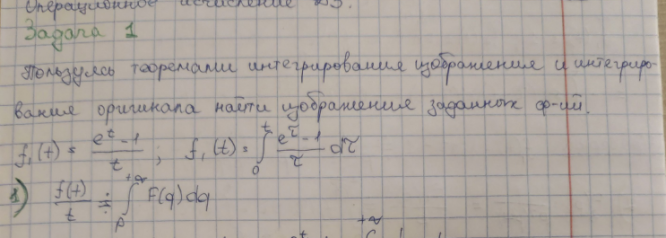 Операционное исчисление
Задача 1
Пользуясь теоремами интегрирования изображения и интегриро-
вания оригинала найти изображения заданных ф-ий.
f₁(t) = (eᵗ - 1)/t ; f₁(t) = ∫₀ᵗ (e^τ - 1)/τ dτ
1) f(t)/t ≑ ∫ₚ^{+∞} F(q)dq